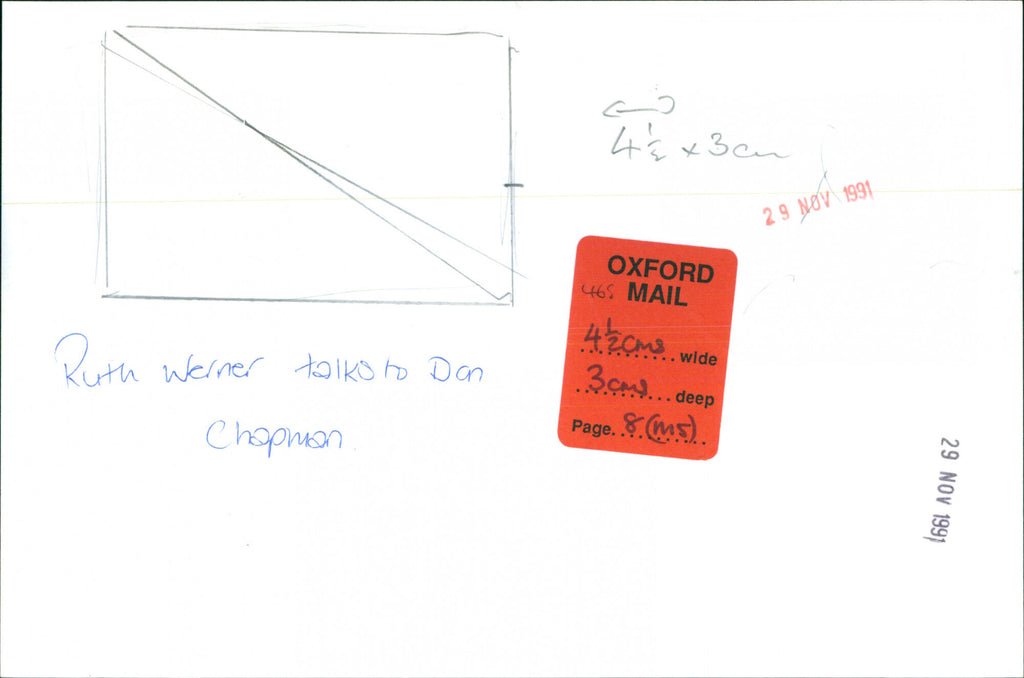 4½ x 3cm
29 NOV 1991
OXFORD
MAIL
4½cms wide
3cms deep
Page 8 (M5)
Ruth Werner talks to Don
Chapman.
29 NOV 1991